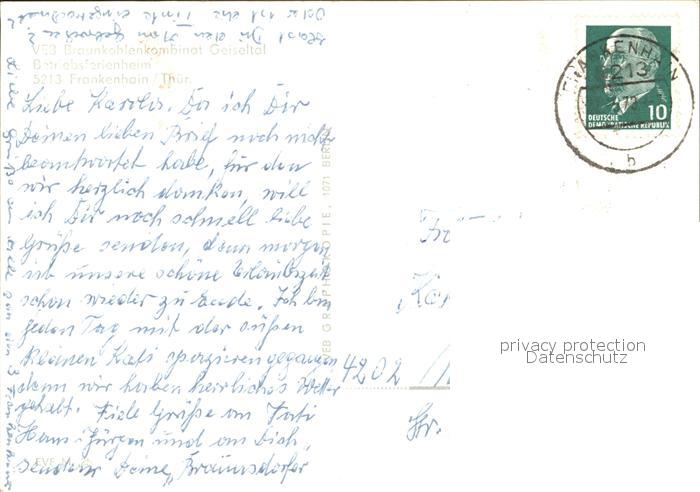 VEB Braunkohlenkombinat Geiseltal
Betriebsferienheim
5213 Frankenhain / Thür.
Liebe Karola. Da ich Dir
Deinen lieben Brief noch nicht
beantwortet habe, für den
wir herzlich danken, will
ich Dir noch schnell liebe
Grüße senden, denn morgen
ist unsere schöne Urlaubszeit
schon wieder zu Ende. Ich bin
jeden Tag mit der süßen
kleinen Kati spazierengegangen
denn wir haben herrliches Wetter
gehabt. Viele Grüße an Vati
Hans-Jürgen und an Dich,
senden Deine Braunsdorfer
VEB GRAPHOKOPIE, 1071 BERLIN
FRANKENHAIN
5213
b
10
DEUTSCHE
DEMOKRATISCHE REPUBLIK
Fr
Ka
4202
Str.
privacy protection
Datenschutz